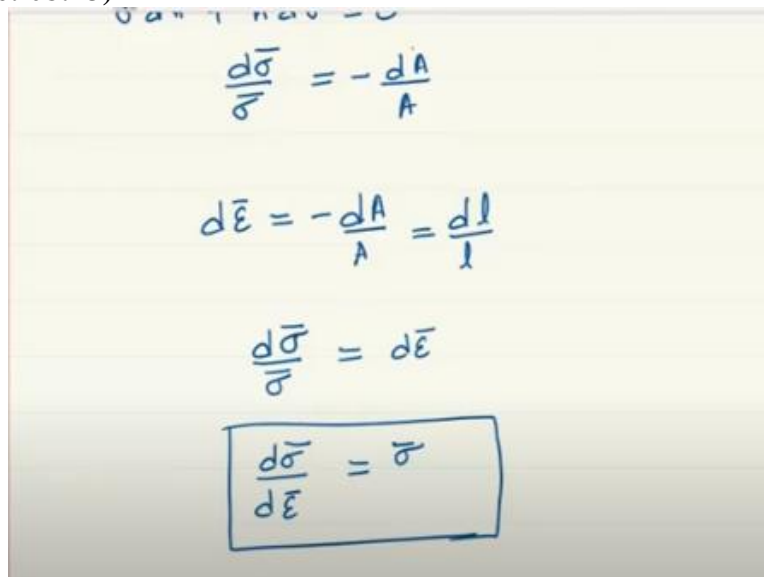 dσ̄/σ̄ = - dA/A
dε̄ = - dA/A = dl/l
dσ̄/σ̄ = dε̄
dσ̄/dε̄ = σ̄